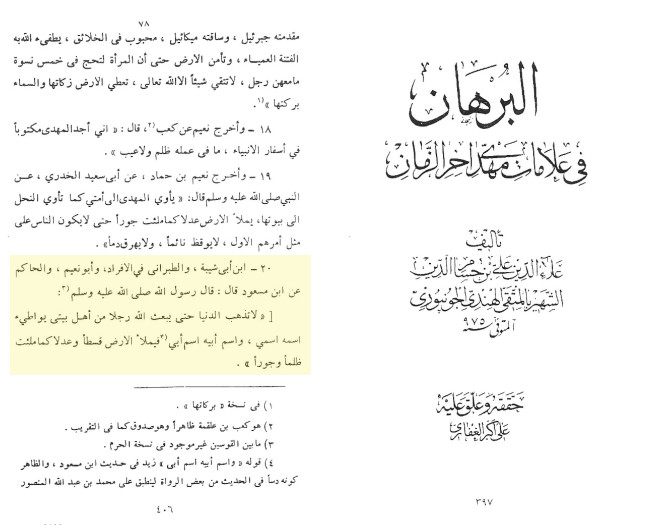 البرهان
في علامات مهدي آخر الزمان
تأليف
علاء الدين علي بن حسام الدين
الشهير بالمتقي الهندي الجونپوري
المتوفى سنة ٩٧٥
حققه وعلق عليه
علي أكبر الغفاري
٣٩٧
٧٨
مقدمته جبرئيل ، وساقته ميكائيل ، محبوب فى الخلائق ، يطفىء الله به
الفتنة العمياء ، وتأمن الارض حتى أن المرأة لتحج فى خمس نسوة
مامعهن رجل ، لاتتقي شيئاً الاالله تعالى ، تعطي الارض زكاتها والسماء
بركتها »(١.
١٨ – وأخرج نعيم عن كعب(٢، قال : « اني أجد المهدى مكتوباً
في أسفار الانبياء ، ما فى عمله ظلم ولاعيب » .
١٩ – وأخرج نعيم بن حماد ، عن أبي سعيد الخدري ، عن
النبي صلى الله عليه وسلم قال: « يأوي المهدى الى أمتي كما تأوي النحل
الى بيوتها، يملأ الارض عدلا كما ملئت جوراً حتى لايكون الناس على
مثل أمرهم الاول ، لايوقظ نائماً ، ولايهرق دماً» .
٢٠ – ابن أبي شيبة ، والطبراني في الافراد، وأبونعيم ، والحاكم
عن ابن مسعود قال : قال رسول الله صلى الله عليه وسلم (٣:
[ « لاتذهب الدنيا حتى يبعث الله رجلا من أهل بيتى يواطيء
اسمه اسمي ، واسم أبيه اسم أبي(٤ فيملأ الارض قسطاً وعدلا كما ملئت
ظلماً وجوراً » .
١) فى نسخة « بركاتها » .
٢) هو كعب بن علقمة ظاهراً وهو صدوق كما فى التقريب .
٣) مابين القوسين غير موجود فى نسخة الحرم .
٤) قوله « واسم أبيه اسم أبى » زيد فى حديث ابن مسعود ، والظاهر
كونه دساً فى الحديث من بعض الرواة لينطبق على محمد بن عبد الله المنصور
٤٠٦